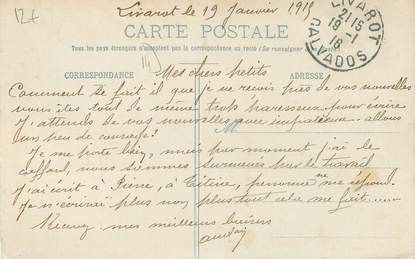 12t
Livarot le 19 Janvier 1915
CARTE POSTALE
Tous les pays étrangers n'acceptent pas la correspondance au recto (Se renseigner
LIVAROT
21 15
19 - 1
CALVADOS
CORRESPONDANCE
ADRESSE
Mes chers petits
Comment se fait il que je ne reçois pas de vos nouvelles
vous êtes tout de même trop paresseux pour écrire
J'attends de vos nouvelles avec impatience. allons
un peu de courage?
Je me porte bien, mais par moment j'ai le
caffard, nous sommes surmenés par le travail
J'ai écrit à à Titine, personne ne me répond.
Je n'écrirai plus non plus tout cela me fait
Recevez mes meilleurs baisers